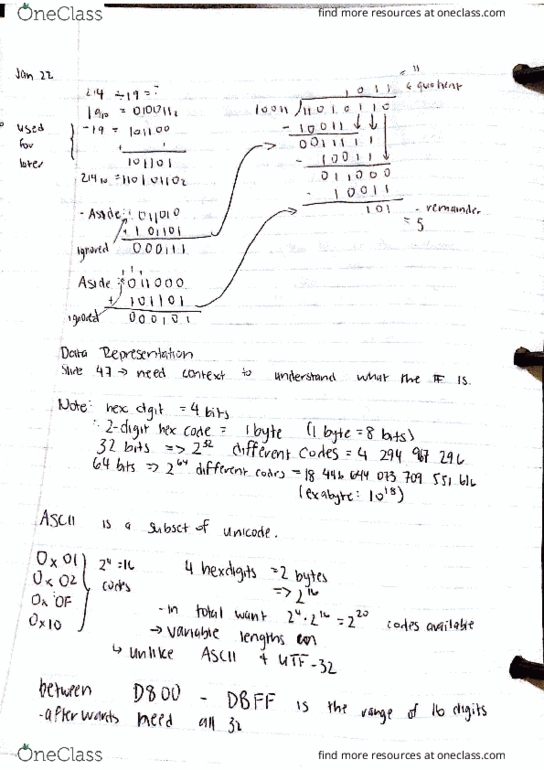 OneClass
find more resources at oneclass.com
Jan 22
214 ÷ 19 = ?
19₁₀ = 010011₂
-19 = 101100
+ 1
101101
214₁₀ = 11010110₂
used
for
later
= 11
1011 ← quotient
10011 ) 11010110
- 10011
0011111
- 10011
011000
- 10011
101 - remainder
= 5
- Aside: 011010
+ 101101
ignored 000111
Aside: 011000
+ 101101
ignored 000101
Data Representation
Slide 47 → need context to understand what the # is.
Note: hex digit = 4 bits
∴ 2-digit hex code = 1 byte (1 byte = 8 bits)
32 bits => 2³² different codes = 4 294 967 296
64 bits => 2⁶⁴ different codes = 18 446 644 073 709 551 616
(exabyte: 10¹⁸)
ASCII is a subset of unicode.
0x01
0x02
0x 0F
0x10
2⁴ = 16
codes
4 hexdigits = 2 bytes
=> 2¹⁶
- in total want 2⁴ · 2¹⁶ = 2²⁰ codes available
→ variable lengths
↳ unlike ASCII + UTF-32
between D800 - DBFF is the range of 16 digits
- afterwards need all 32
OneClass
find more resources at oneclass.com